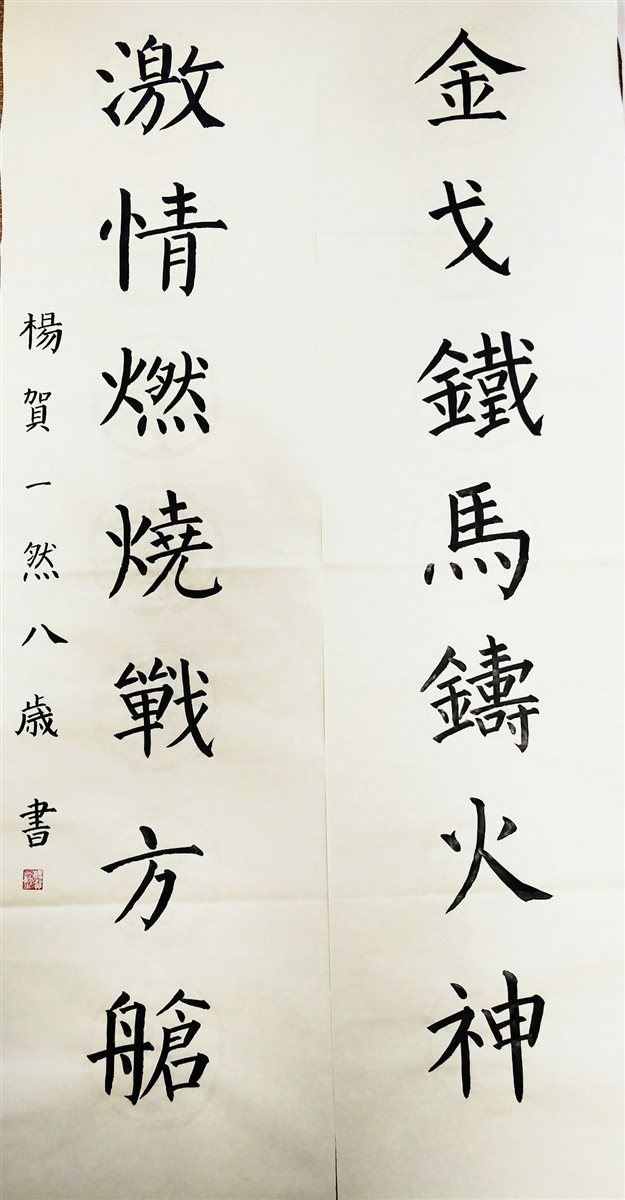 金戈鐵馬鑄火神
激情燃燒戰方艙
楊賀一然八歲書